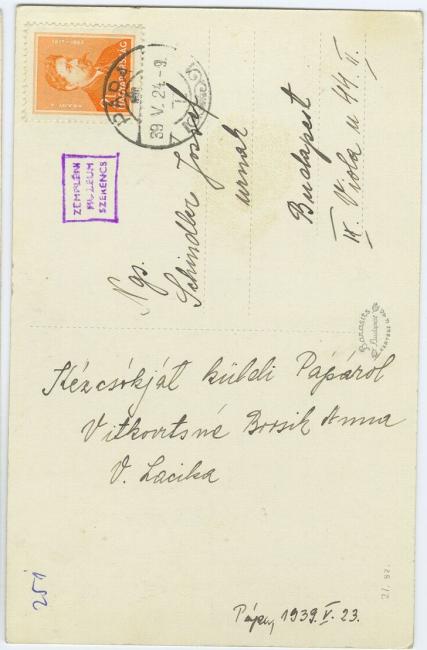 1817-1882
MAGYARORSZÁG
PÁPA
39 V. 24.-9
ZEMPLÉNI
MÚZEUM
SZERENCS
Ngs.
Schindler József
urnak
Budapest
IX Viola u 44. II.
Barasits
Budapest
Kézcsókját küldi Pápáról
Vitkovtsné Borsik Anna
V. Lacika
251
Pápa, 1939. V. 23.